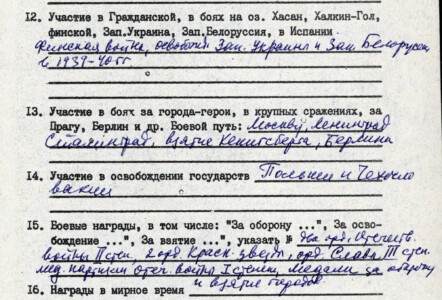 12. Участие в Гражданской, в боях на оз. Хасан, Халкин-Гол,
финской, Зап.Украина, Зап.Белоруссия, в Испании
Финская война, освобожд Зап. Украина и Зап. Белорусси
в 1939-40 гг.
13. Участие в боях за города-герои, в крупных сражениях, за
Прагу, Берлин и др. Боевой путь: Москву, Ленинград
Сталинград, взятие Кенигсберга, Берлина
14. Участие в освобождении государств Польши и Чехосло
вакии
15. Боевые награды, в том числе: "За оборону ...", За осво-
бождение ...", За взятие ...", указать № два орд. Отечеств.
войны II степ, 2 орд Красн. звезд, орд. Слава III степ.
мед. партизан отеч. войны I степени, медали за оборону
и взятие городов.
16. Награды в мирное время